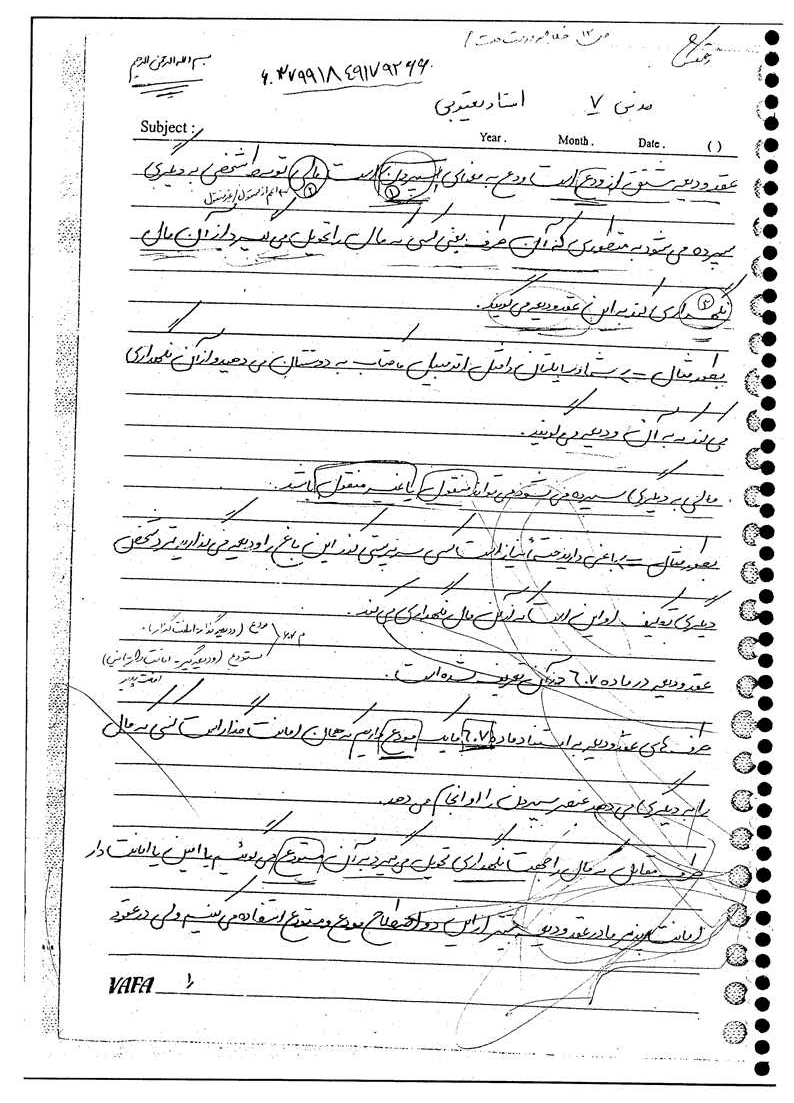 بسم الله الرحمن الرحیم
مدنی ۷ استاد یعقوبی
Subject :
Year . Month . Date . ( )
عقد ودیعه مشتق از ودع است ودع به معنای سپردن است مالی توسط شخصی به دیگری
۱ ۲ اعم از منقول / غیرمنقول
سپرده می شود به منظوری که آن طرف یعنی کسی که مال را تحویل می گیرد از آن مال
نگهداری کند به این عقد ودیعه می گویند.
۳
بطور مثال => شما وسایلتان را مثل اتومبیل یا کتاب به دوستتان می دهید و از آن نگهداری
می کند که به آن ودیعه می گویند.
مالی به دیگری سپرده می شود می تواند منقول یا غیر منقول باشد.
بطور مثال => باغی دارید نیاز است کسی سرپرستی کند این باغ را ودیعه می گذارید نزد شخص
دیگری تکلیف او این است که از این مال نگهداری می کند.
م ۶۰۷ مودع (ودیعه گذار، امانت گذار).
مستودع (ودیعه گیر - امانت دار، امین)
امانت پذیر
عقد ودیعه در ماده ۶۰۷ تعریف شده است.
طرف های عقد ودیعه به استناد ماده ۶۰۷ ما یک مودع داریم که همان امانت گذار است کسی که مال
را به دیگری می دهد عنصر سپردن را او انجام می دهد.
طرف مقابل که مال را جهت نگهداری تحویل می گیرد به آن مستودع می گوئیم یا امین یا امانت دار
امانت پذیر ما در عقد ودیعه از این دو اصطلاح مودع و مستودع استفاده می کنیم ولی در عقود
VAFA ۱